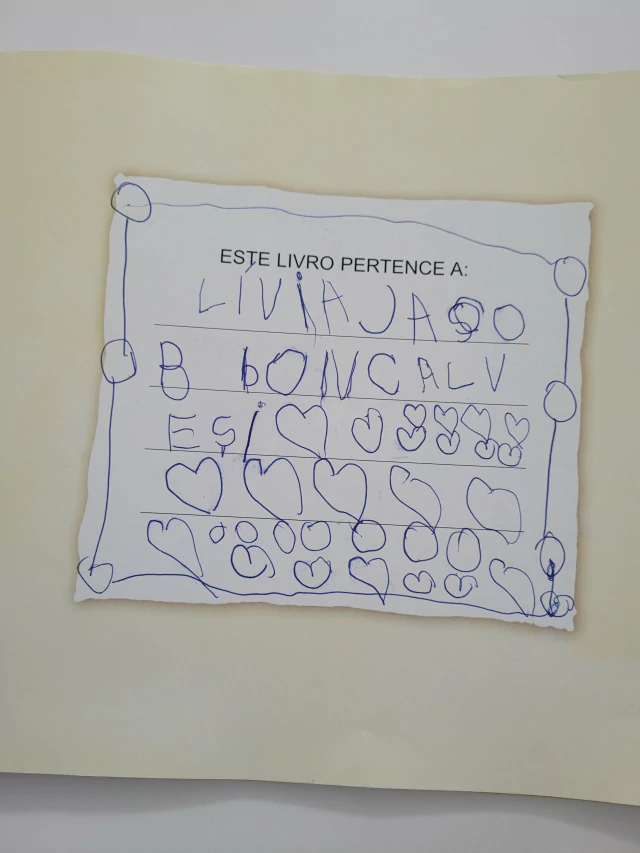 ESTE LIVRO PERTENCE A:
LÍVIA JAGO
B GONCALV
ES